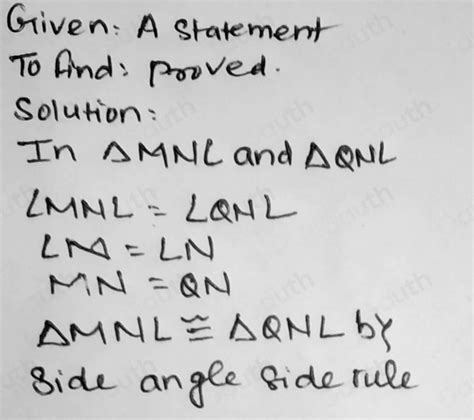 Given: A Statement
To find: proved.
Solution:
In △MNL and △QNL
∠MNL = ∠QNL
LM = LN
MN = QN
△MNL ≅ △QNL by
Side angle Side rule